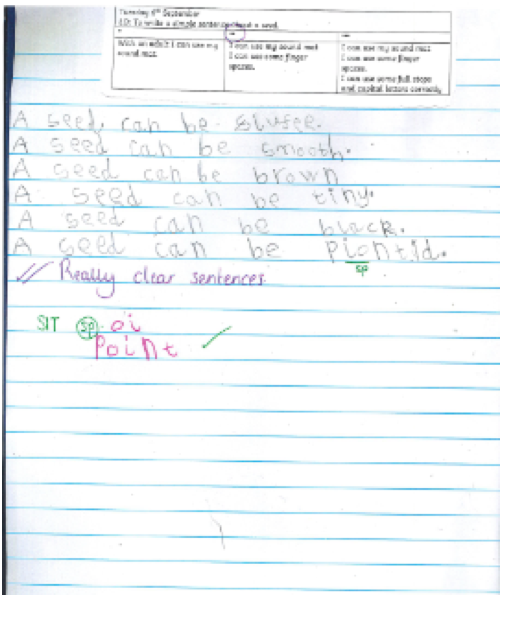 Tuesday 6th September
LO: To write a simple sentence about a seed.
* ** ***
With an adult I can use my sound mat.
I can use my sound mat
I can use some finger spaces.
I can use my sound mat
I can use some finger spaces.
I can use some full stops and capital letters correctly
A seed. can be. slufee.
A seed can be smooth.
A seed can be brown
A seed can be tiny.
A seed can be black.
A seed can be piontid.
sp
Really clear sentences.
SIT sp oi
Point